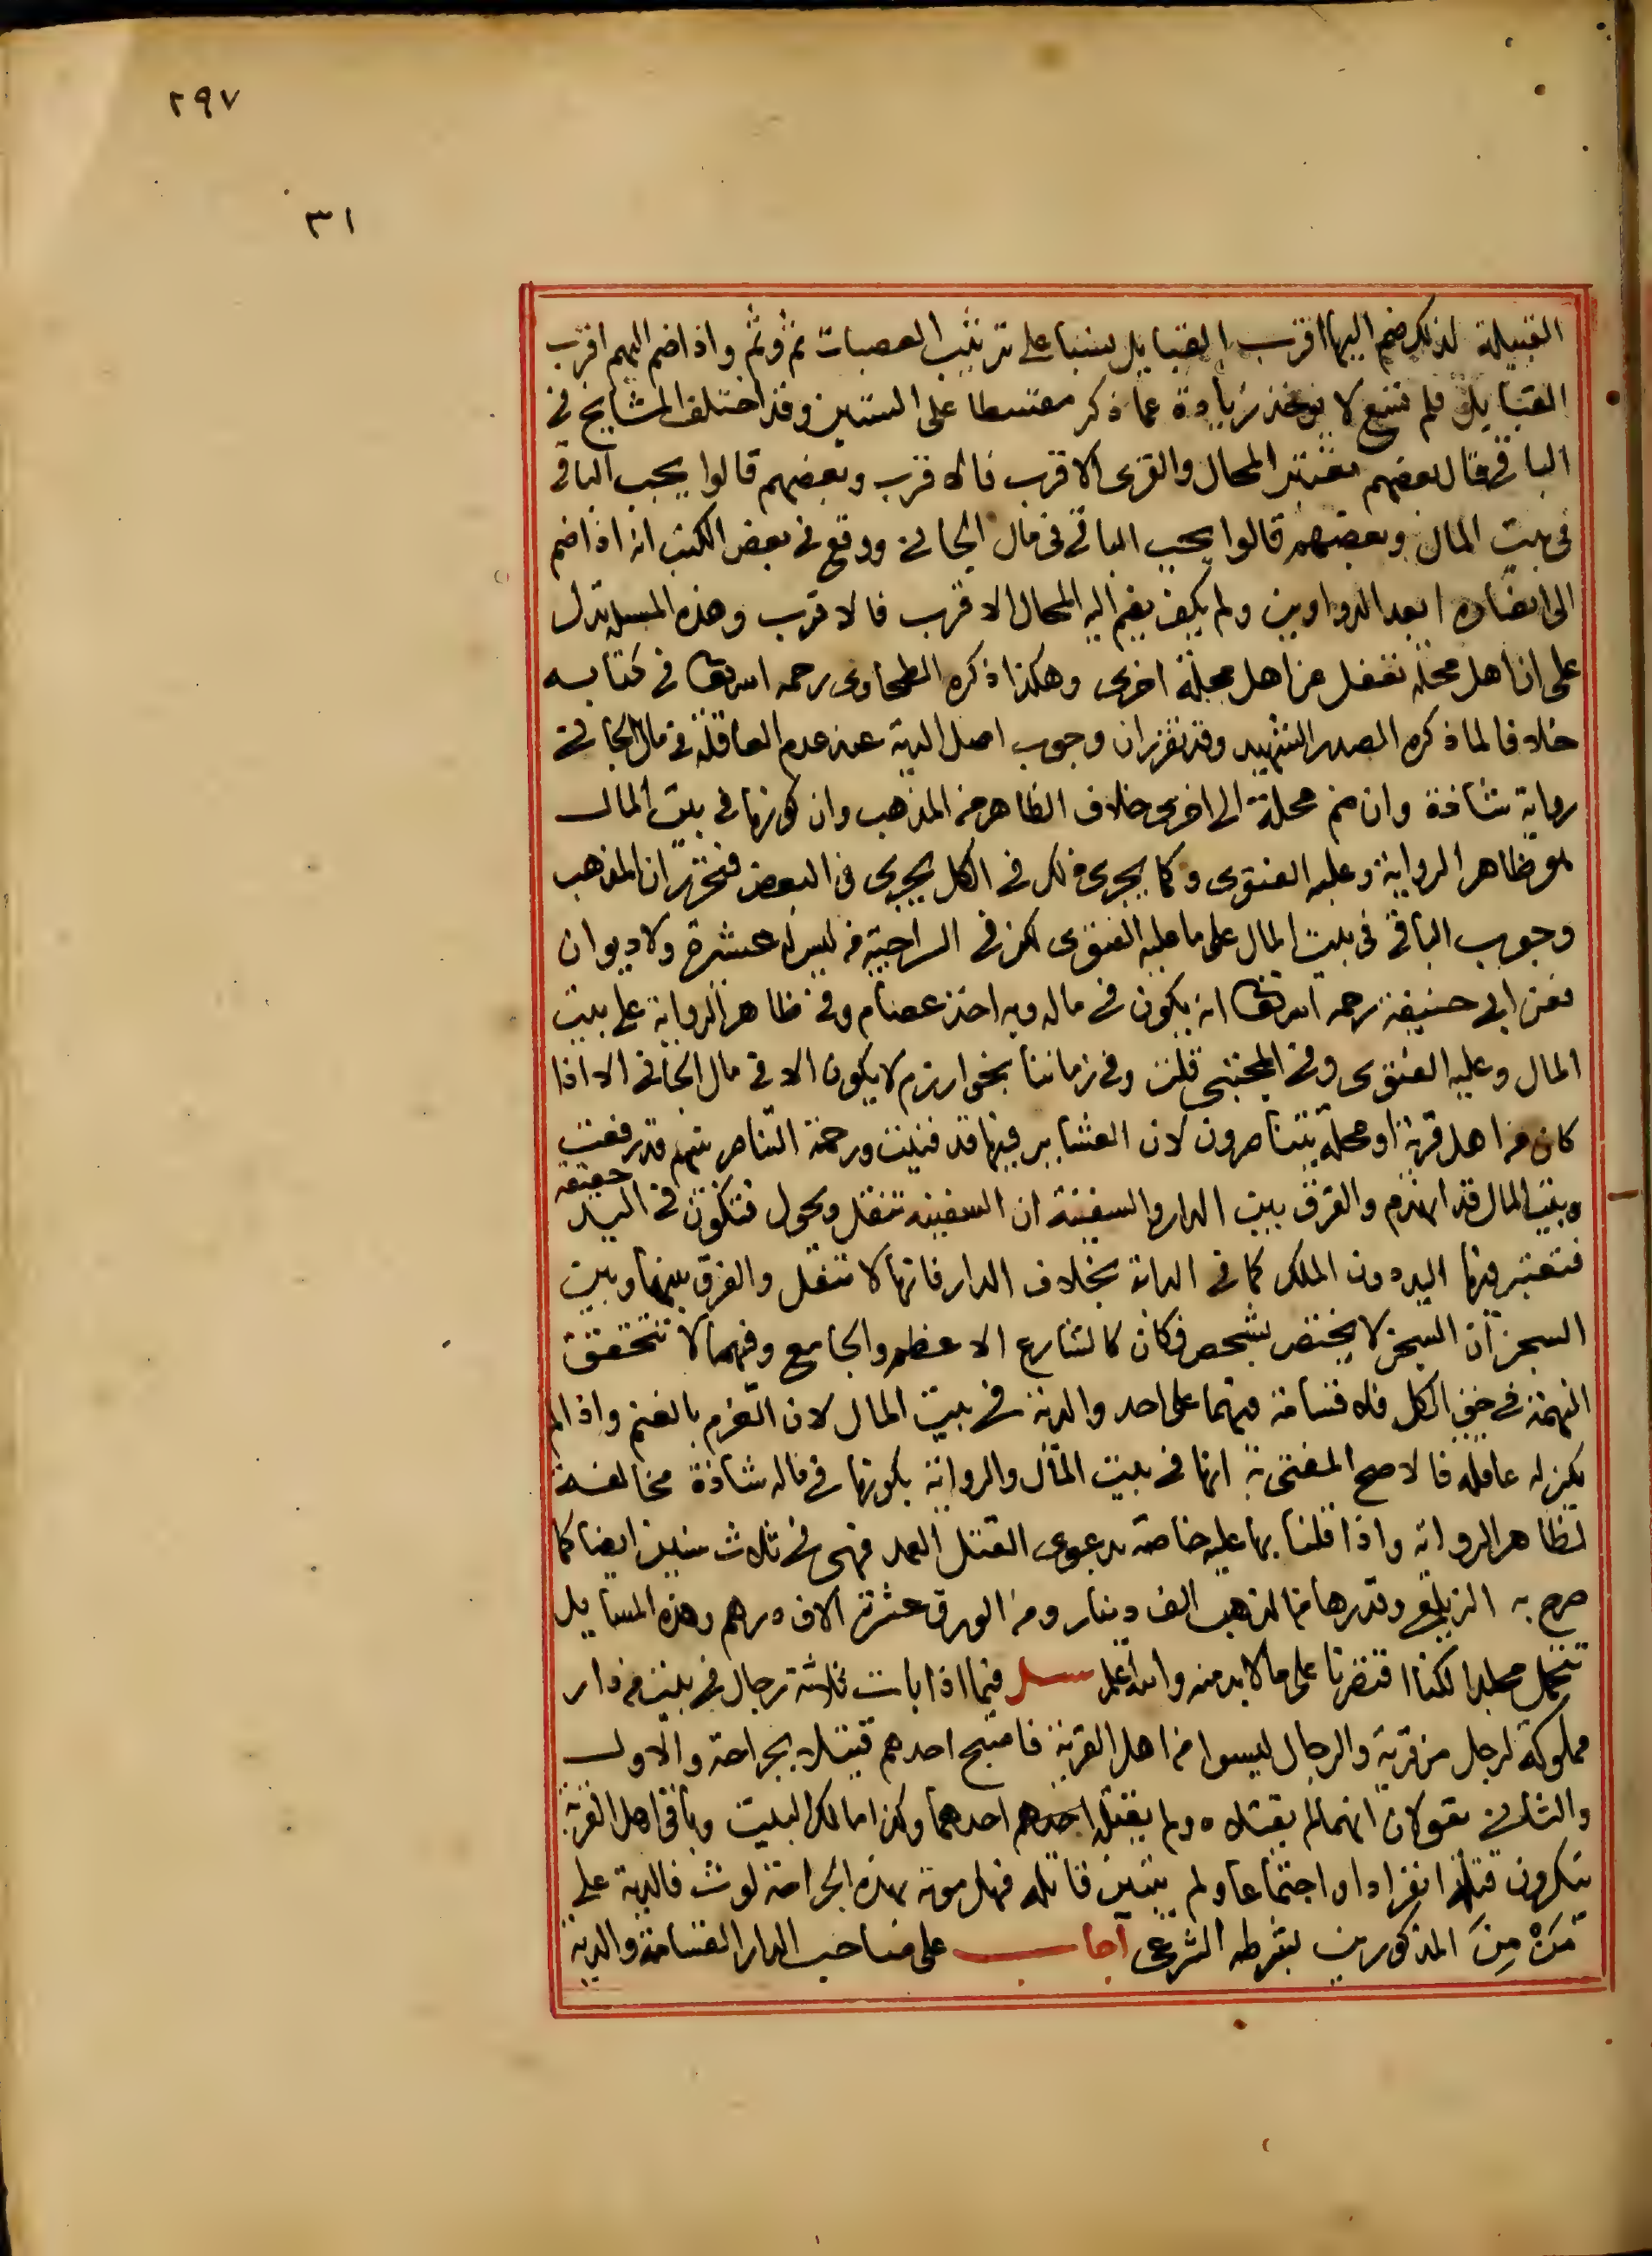 ٢٩٧
٣١
القبيلة لذلك ضم اليها اقرب القبايل نسبا على ترتيب العصبات ثم وثم واذا ضم اليهم اقرب
القبايل فلم تتسع لا يوخذ زيادة عما ذكر مقتسطا على السنين وقد اختلف المشايخ في
الباقي فقال بعضهم تعتبر المحال والقرى الاقرب فالاقرب وبعضهم قالوا يجب الباقي
في بيت المال وبعضهم قالوا يجب الباقي في مال الجاني ووقع في بعض الكتب انه اذا ضم
الى ابعد الدواوين ولم يكف يضم اليه المحال الاقرب فالاقرب وهذه المسيلة تدل
على ان اهل محلة تعقل عن اهل محلة اخرى وهكذا ذكره الطحاوى رحمه الله تعا في كتابه
خلافا لما ذكره الصدر الشهيد وقد تقرر ان وجوب اصل الدية عند عدم العاقلة في مال الجاني
رواية شاذة وان ضم محلة الى اخرى خلاف الظاهر من المذهب وان كونها في بيت المال
هو ظاهر الرواية وعليه الفتوى وكما يجرى ذلك في الكل يجرى في البعض فتحرر ان المذهب
وجوب الباقي في بيت المال على ما عليه الفتوى لكن في السراجية من ليس له عشيرة ولا ديوان
فعن ابي حنيفة رحمه الله تعا انه يكون في ماله وبه اخذ عصام وفي ظاهر الرواية على بيت
المال وعليه الفتوى وفي المجتبى قلت وفي زماننا بخوارزم لا يكون الا في مال الجاني الا اذا
كان من اهل قرية او محلة يتناصرون لان العشاير فيها قد فنيت ورحمة التناصر بينهم قد رفعت
وبيت المال قد انهدم والفرق بين الدار والسفينة ان السفينة تنقل وتحول فتكون في اليد حقيقة
فتعتبر فيها اليد دون الملك كما في الدابة بخلاف الدار فانها لا تنقل والفرق بينهما وبين
السجن ان السجن لا يختص بشخص فكان كالشارع الاعظم والجامع وفيهما لا تتحقق
التهمة في حق الكل فلا قسامة فيهما على احد والدية في بيت المال لان الغرم بالغنم واذا لم
يكن له عاقلة فالاصح المفتى به انها في بيت المال والرواية بكونها في ماله شاذة مخالفة
لظاهر الرواية واذا قلنا بها عليه خاصة بدعوى القتل العمد فهى في ثلاث سنين ايضا كما
صرح به الزيلعي وقدرها من الذهب الف دينار ومن الورق عشرة آلاف درهم وهذه المسايل
تتحمل مجلدا لكنا اقتصرنا على ما لا بد منه والله اعلم سئل فيما اذا بات ثلاثة رجال في بيت من دار
مملوكة لرجل من قرية والرجال ليسوا من اهل القرية فاصبح احدهم قتيلا بجراحة والاول
والثاني يقولان انهما لم يقتلاه ولم يقتله احدهم احدهما وكذا مالك البيت وباقي اهل القرية
ينكرون قتله انفرادا واجتماعا ولم يتبين قاتله فهل موته بهذه الجراحة لوث فالدية على
مَنْ مِنَ المذكورين بشرطه الشرعي اجاب على صاحب الدار القسامة والدية